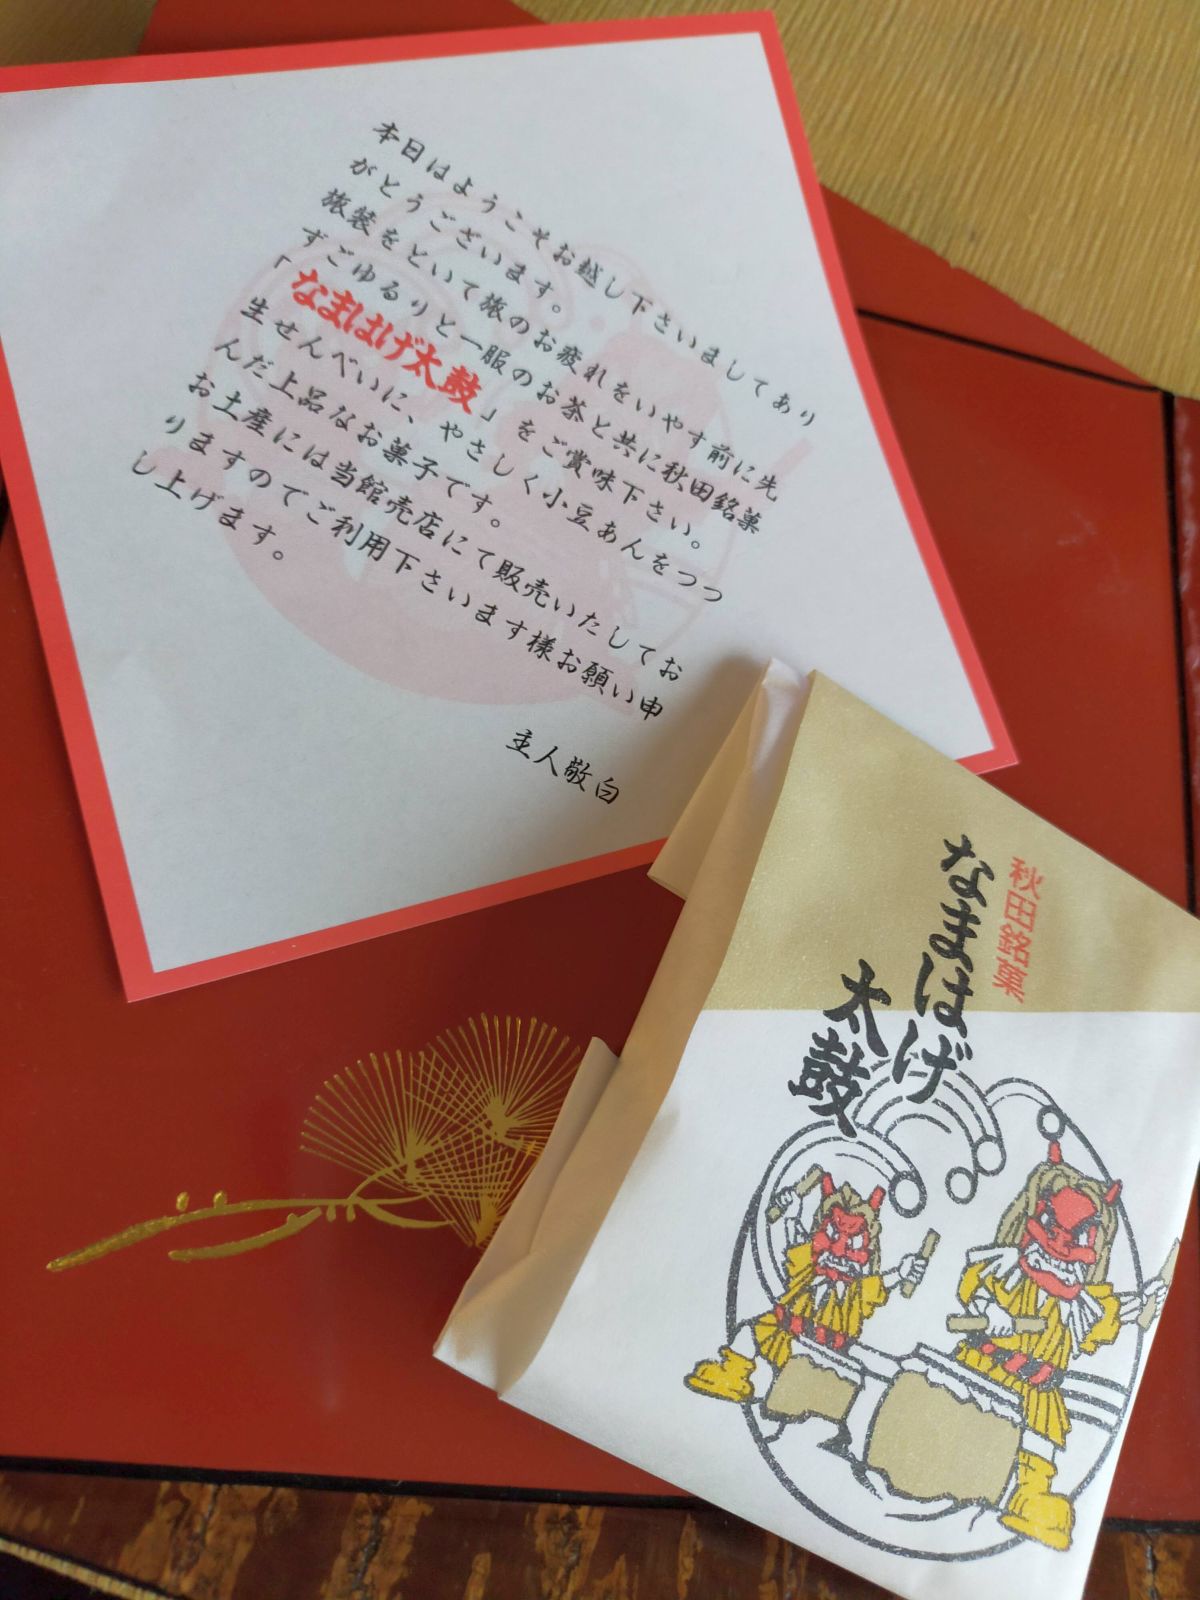 本日はようこそお越し下さいましてあり
がとうございます。
旅装をといて旅のお疲れをいやす前に先
ずごゆるりと一服のお茶と共に秋田銘菓
「なまはげ太鼓」をご賞味下さい。
生せんべいに、やさしく小豆あんをつつ
んだ上品なお菓子です。
お土産には当館売店にて販売いたしてお
りますのでご利用下さいます様お願い申
し上げます。
主人敬白
秋田銘菓
なまはげ
太鼓